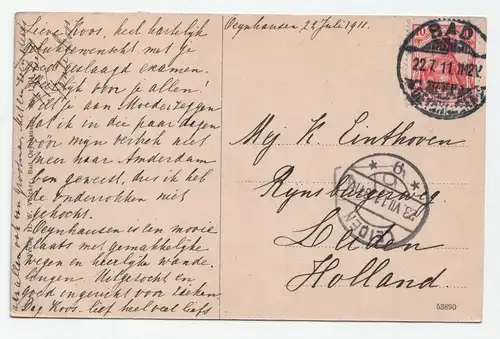 Oeynhausen 22 Juli 1911.
Lieve Koos, heel hartelijk
gelukgewenscht met je
goed geslaagd examen.
Heerlijk voor je allen!
Wil je aan Moeder zeggen
dat ik in die paar dagen
vóór mijn vertrek niet
meer naar Amsterdam
ben geweest, dus ik heb
de onderrokken niet
gekocht.
Oeynhausen is een mooie
plaats met gemakkelijke
wegen en heerlijke wande-
lingen. Uitgezocht en
goed ingericht voor zieken
Dag Koos. lief heel veel liefs
aan allen ook van
Mej K. Einthoven
Rynsburgerweg
Leiden
Holland.
BAD
22.7.11.
LEIDEN
53890